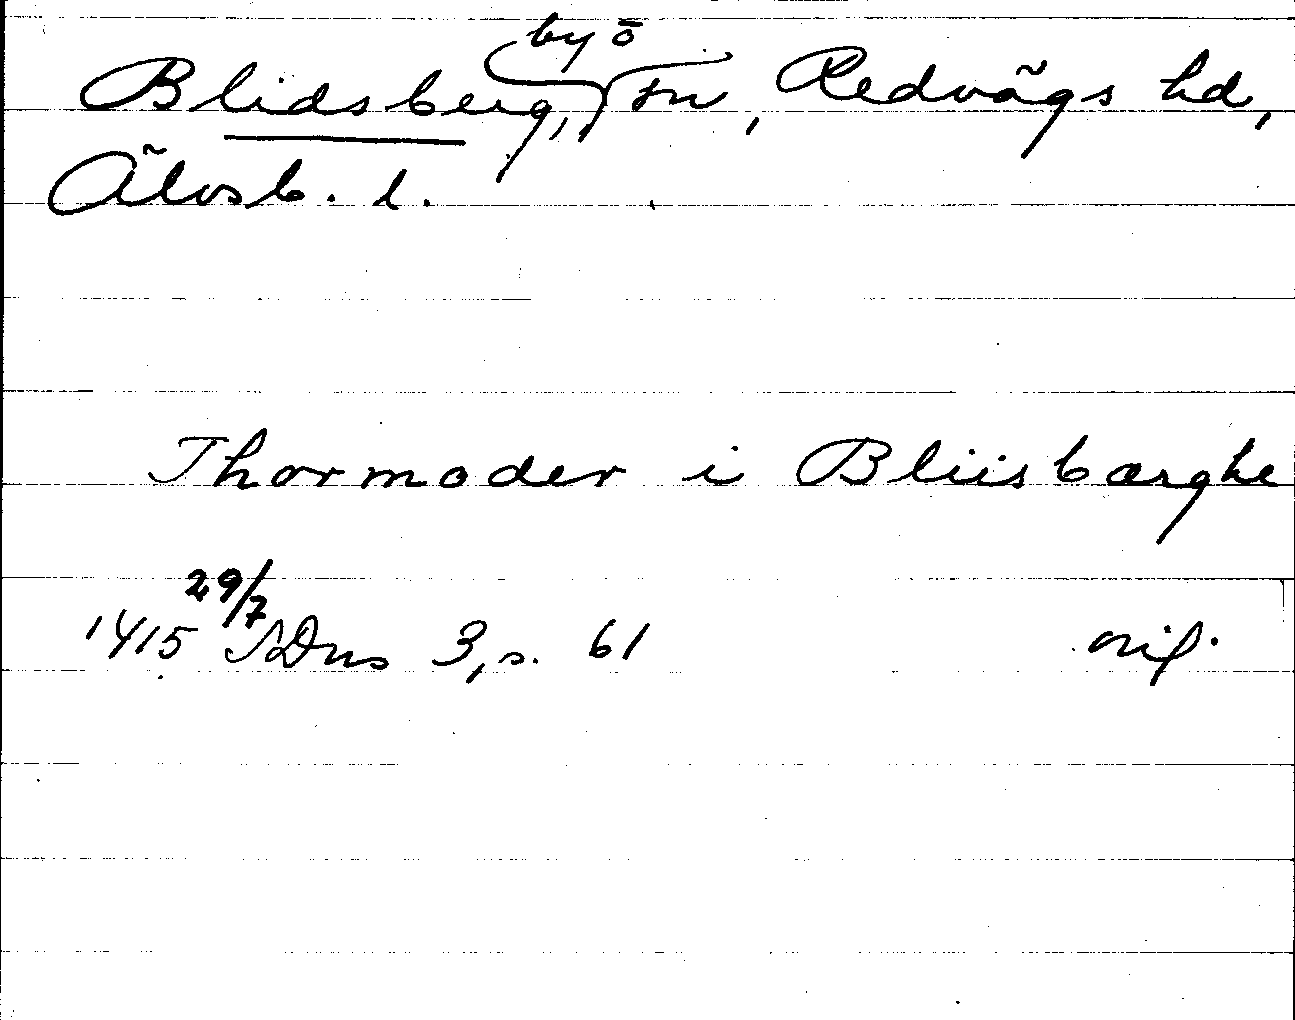 by o
Blidsberg, sn, Redvägs hd,
Älvsb. l.
Thormoder i Bliisbærghe
1415 29/7 SDns 3, s. 61 orig.